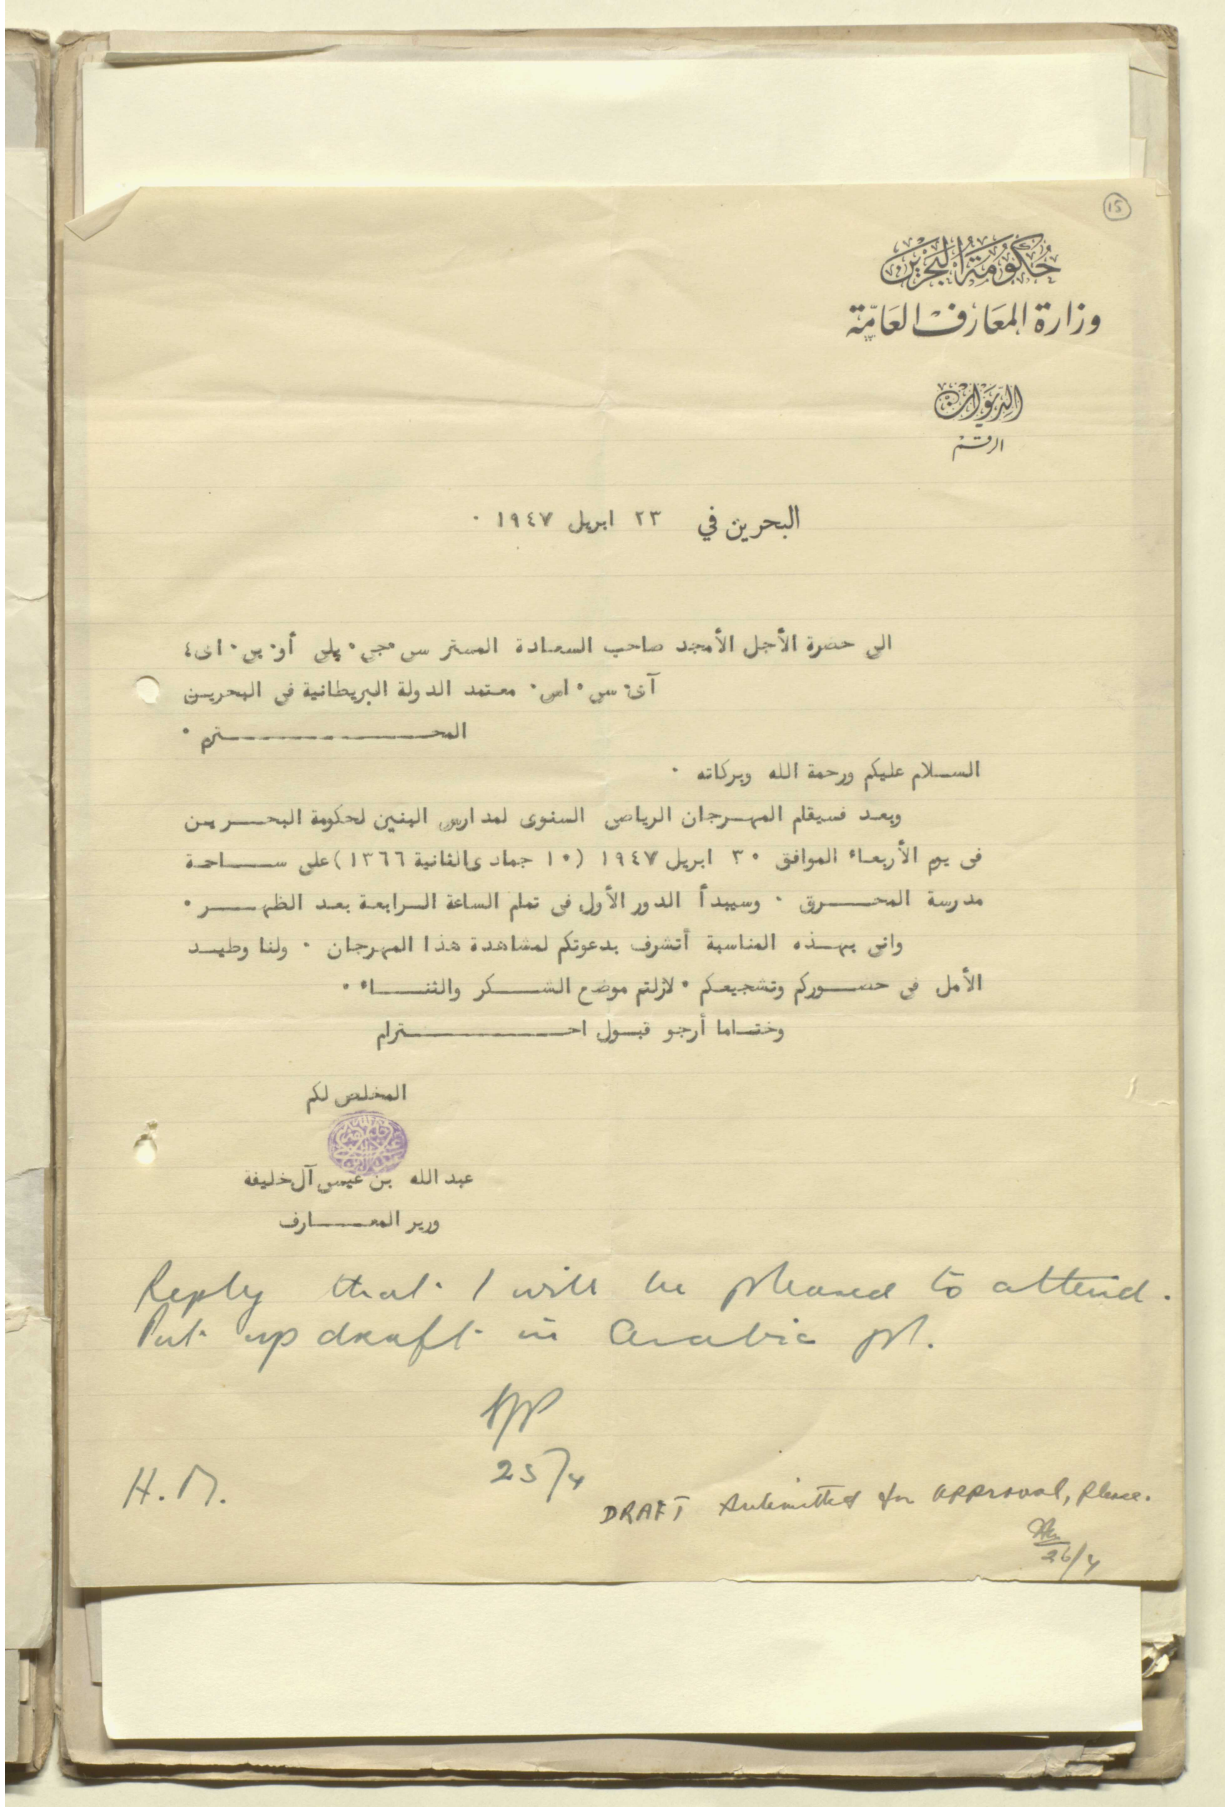 15
حكومة البحرين
وزارة المعارف العامة
الديوان
الرقم
البحرين في ٢٣ ابريل ١٩٤٧ ٠
الى حضرة الأجل الأمجد صاحب السعادة المستر سى ٠جى ٠ پلى أو٠ بى٠ اى٤
آى٠ سى ٠ اس٠ معتمد الدولة البريطانية فى البحريـن
المحـــــــــــــترم ٠
الســلام عليكم ورحمة الله وبركاته ٠
وبعـد فسيقام المهـرجان الرياضى السنوى لمدارس البنين لحكومة البحـــرين
فى يوم الأربعـاء الموافق ٣٠ ابريل ١٩٤٧ (١٠ جمادى الثانية ١٣٦٦) على ســـاحـة
مدرسة المحـــرق ٠ وسيبدأ الدور الأول فى تمام الساعة الـرابعـة بعـد الظهـــر ٠
وانى بهـــذه المناسبة أتشرف بدعوتكم لمشاهدة هذا المهرجان ٠ ولنا وطيـــد
الأمل فى حضـــوركم وتشجيعـكم ٠ لازلتم موضع الشـــكر والثنـــاء ٠
وختـاما أرجو قبـول احـــــــــــترام
المخلص لكم
عبد الله بن عيسى آل خليفة
وزير المعـــــارف
Reply that I will be pleased to attend.
Put up draft in Arabic pl.
25/4
H.M.
DRAFT submitted for approval, please.
26/4